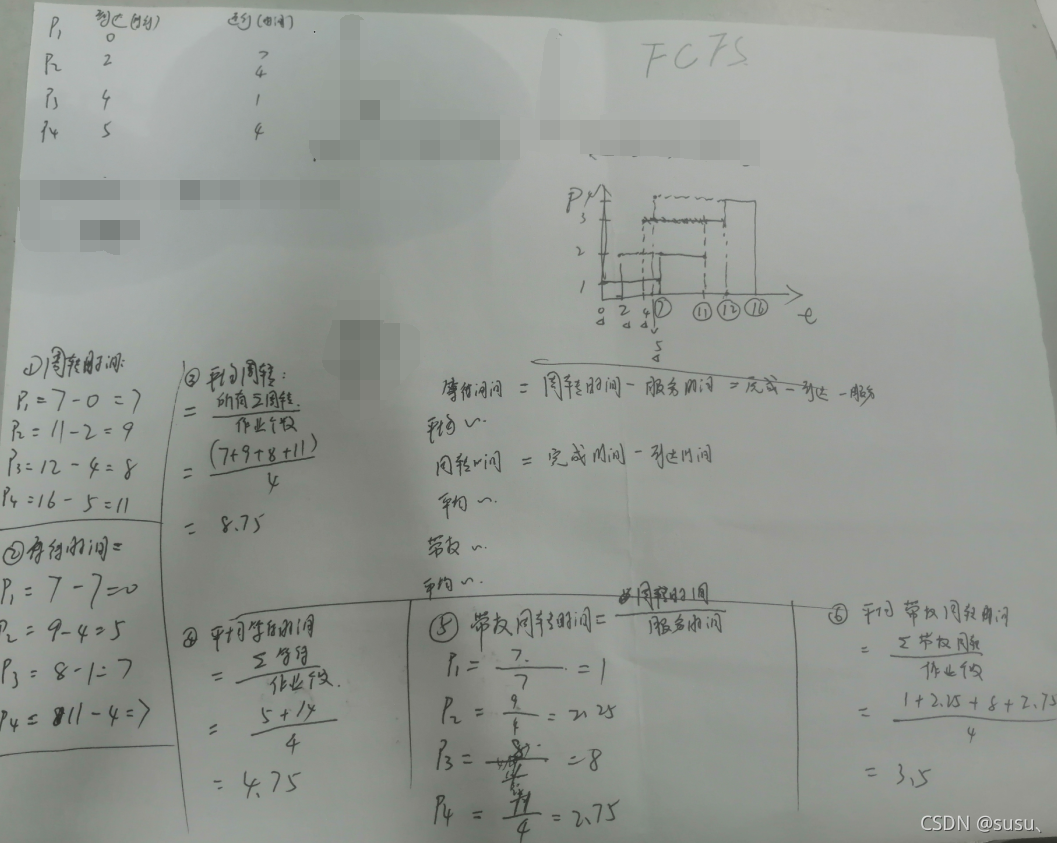 P1 到达(时间) 运行(时间)
0 7
P2 2 4
P3 4 1
P4 5 4
FCFS
P 4
3
2
1
0 2 4 ⑦ ⑪ ⑫ ⑯ t
5
①周转时间:
P1=7-0=7
P2=11-2=9
P3=12-4=8
P4=16-5=11
②等待时间=
P1=7-7=0
P2=9-4=5
P3=8-1=7
P4=11-4=7
③平均周转:
=所有Σ周转/作业个数
=(7+9+8+11)/4
=8.75
等待时间=周转时间-服务时间=完成-到达-服务
平均~.
周转时间=完成时间-到达时间
平均~.
带权~.
平均~.
④平均等待时间
=Σ等待/作业个数.
=5+14/4
=4.75
⑤带权周转时间=周转时间/服务时间
P1=7/7=1
P2=9/4=2.25
P3=8=8
P4=11/4=2.75
⑥平均带权周转时间
=Σ带权周转/作业个数
=1+2.25+8+2.75/4
=3.5
CSDN @susu、